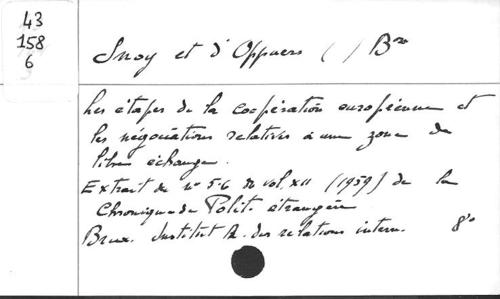 43
158
6
Snoy et d'Oppuers ( ) Bon
Les étapes de la coopération européenne et
les négociations relatives à une zone de
libre échange.
Extrait du n° 5-6 du vol. XII (1959) de la
Chronique de Polit. étrangère
Brux. Institut R. des relations intern. 8°